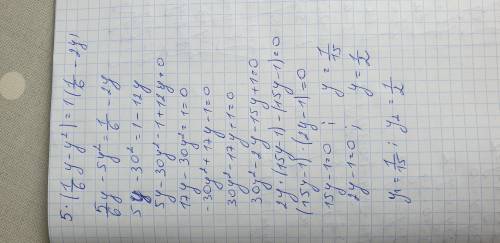 5·(1/6 y - y²) = 1(1/6 - 2y)
5/6 y - 5y² = 1/6 - 2y
5y - 30² - 1 - 12y
5y - 30y² - 1 + 12y = 0
17y - 30y² = 1 = 0
-30y² + 17y - 1 = 0
30y² - 17y + 1 = 0
30y² - 2y - 15y + 1 = 0
2y·(15y - 1) - (15y - 1) = 0
(15y - 1)·(2y - 1) = 0
15y - 1 = 0 ; y = 1/15
2y - 1 = 0 ; y = 1/2
y₁ = 1/15 ; y₂ = 1/2